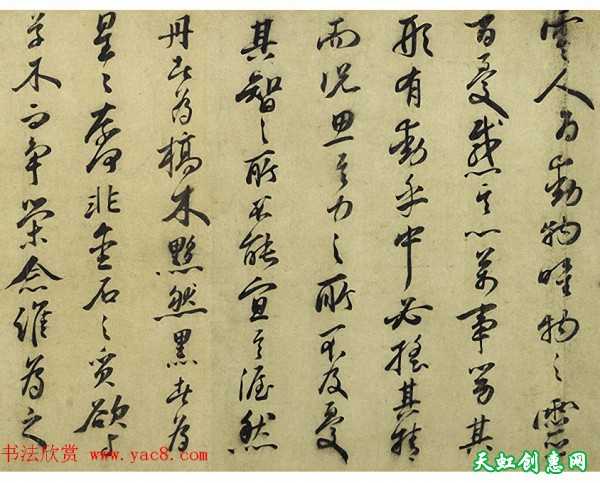 零人為動物唯物之靈
百憂感其心萬事勞其
形有動乎中必搖其精
而況思其力之所不及憂
其智之所不能宜其渥然
丹者為槁木黟然黑者為
星〻奈何非金石之質欲与
草木而爭榮念誰為之
书法欣赏 www.yac8.com
天虹创惠网